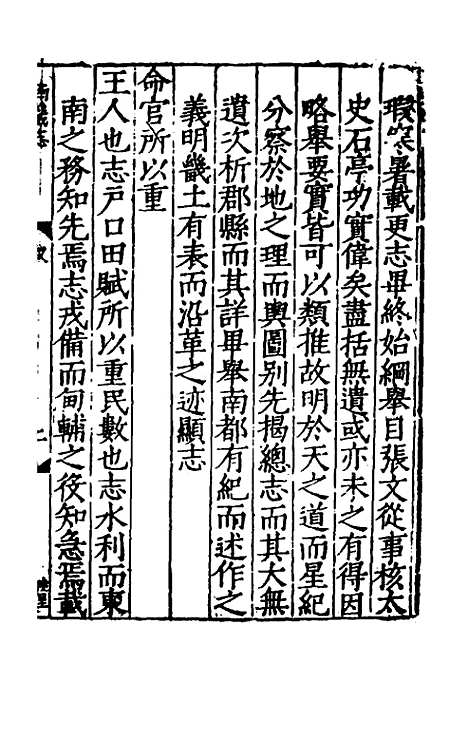 瑕寒暑載更志畢終始綱舉目張文從事核太
史石亭功實偉矣盡括無遺或亦未之有得因
略舉要實皆可以類推故明於天之道而星紀
分察於地之理而輿圖別先揭總志而其大無
遺次析郡縣而其詳畢舉南都有紀而述作之
義明畿土有表而沿革之迹顯志
命官所以重
王人也志戸口田賦所以重民數也志水利而東
南之務知先焉志戎備而甸輔之役知急焉載
南畿志